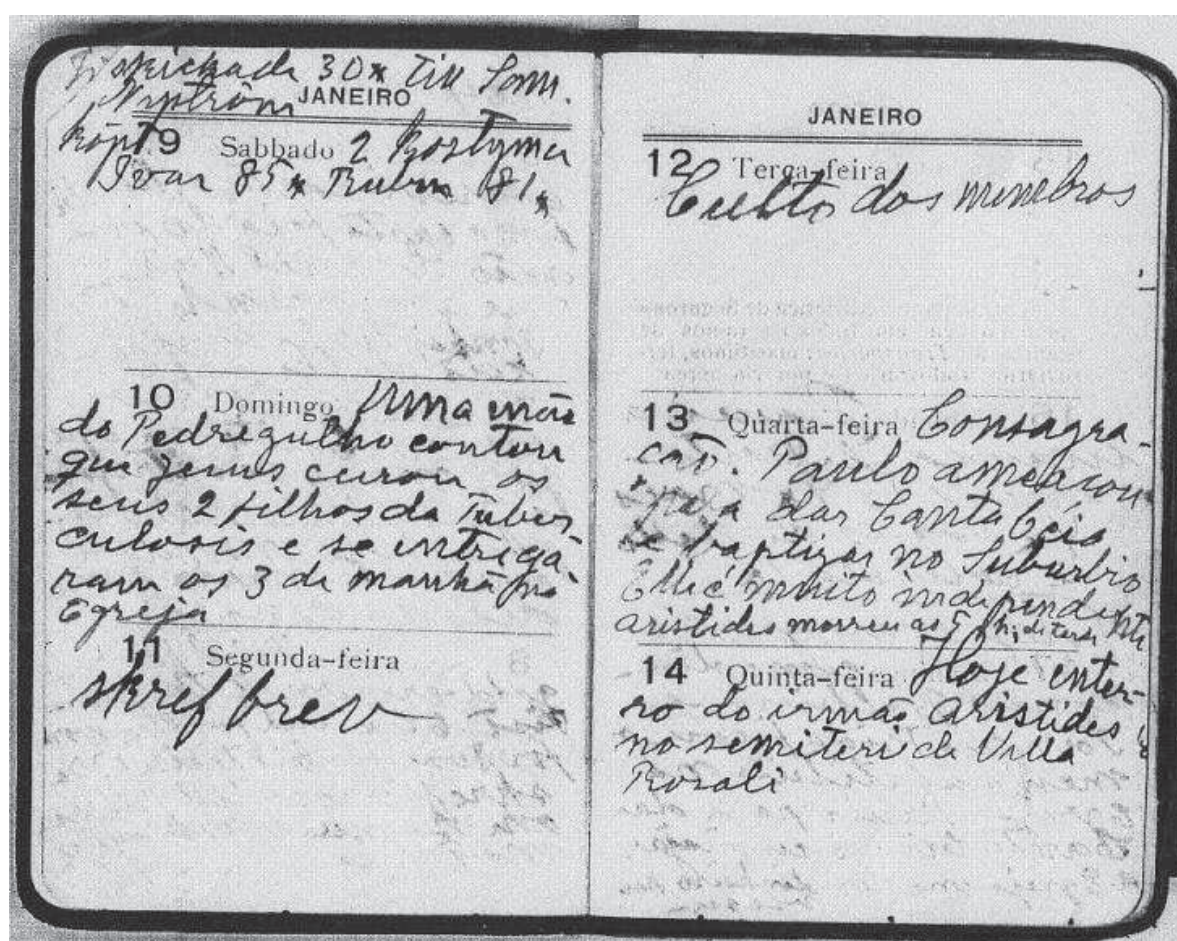 skickade 30x till Sam.
Nyström JANEIRO
köpt 9 Sabbado 2 kostymer
Ivar 85x Ruben 81x
10 Domingo Uma mãe
do Pedregulho contou
que Jesus curou os
seus 2 filhos da Tuber
culosis e se entrega-
ram os 3 de manhã na
Egreja
11 Segunda-feira
skref brev
JANEIRO
12 Terça-feira
Culto dos membros
13 Quarta-feira Consagra-
caõ. Paulo ameaçou
a dar Santa Ceia
e baptizar no Suburbio
Elle é muito independente
Aristides morreu as
14 Quinta-feira Hoje enter-
ro do irmão Aristides
no semiteri de Villa
Rosali